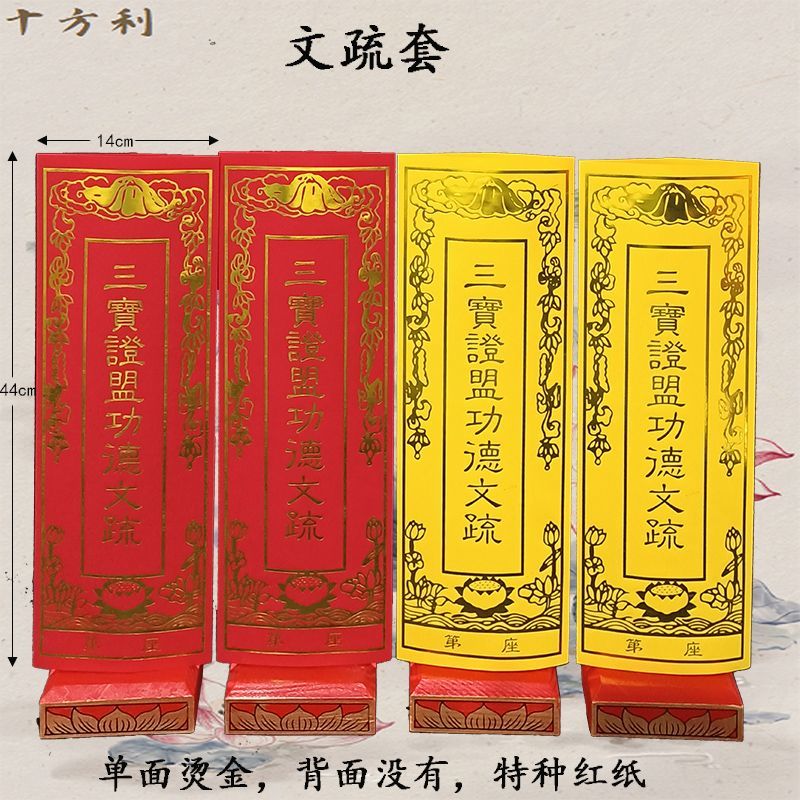 十方利
文疏套
14cm
44cm
三寶證盟功德文疏
第 座
三寶證盟功德文疏
第 座
三寶證盟功德文疏
第 座
三寶證盟功德文疏
第 座
单面烫金，背面没有，特种红纸